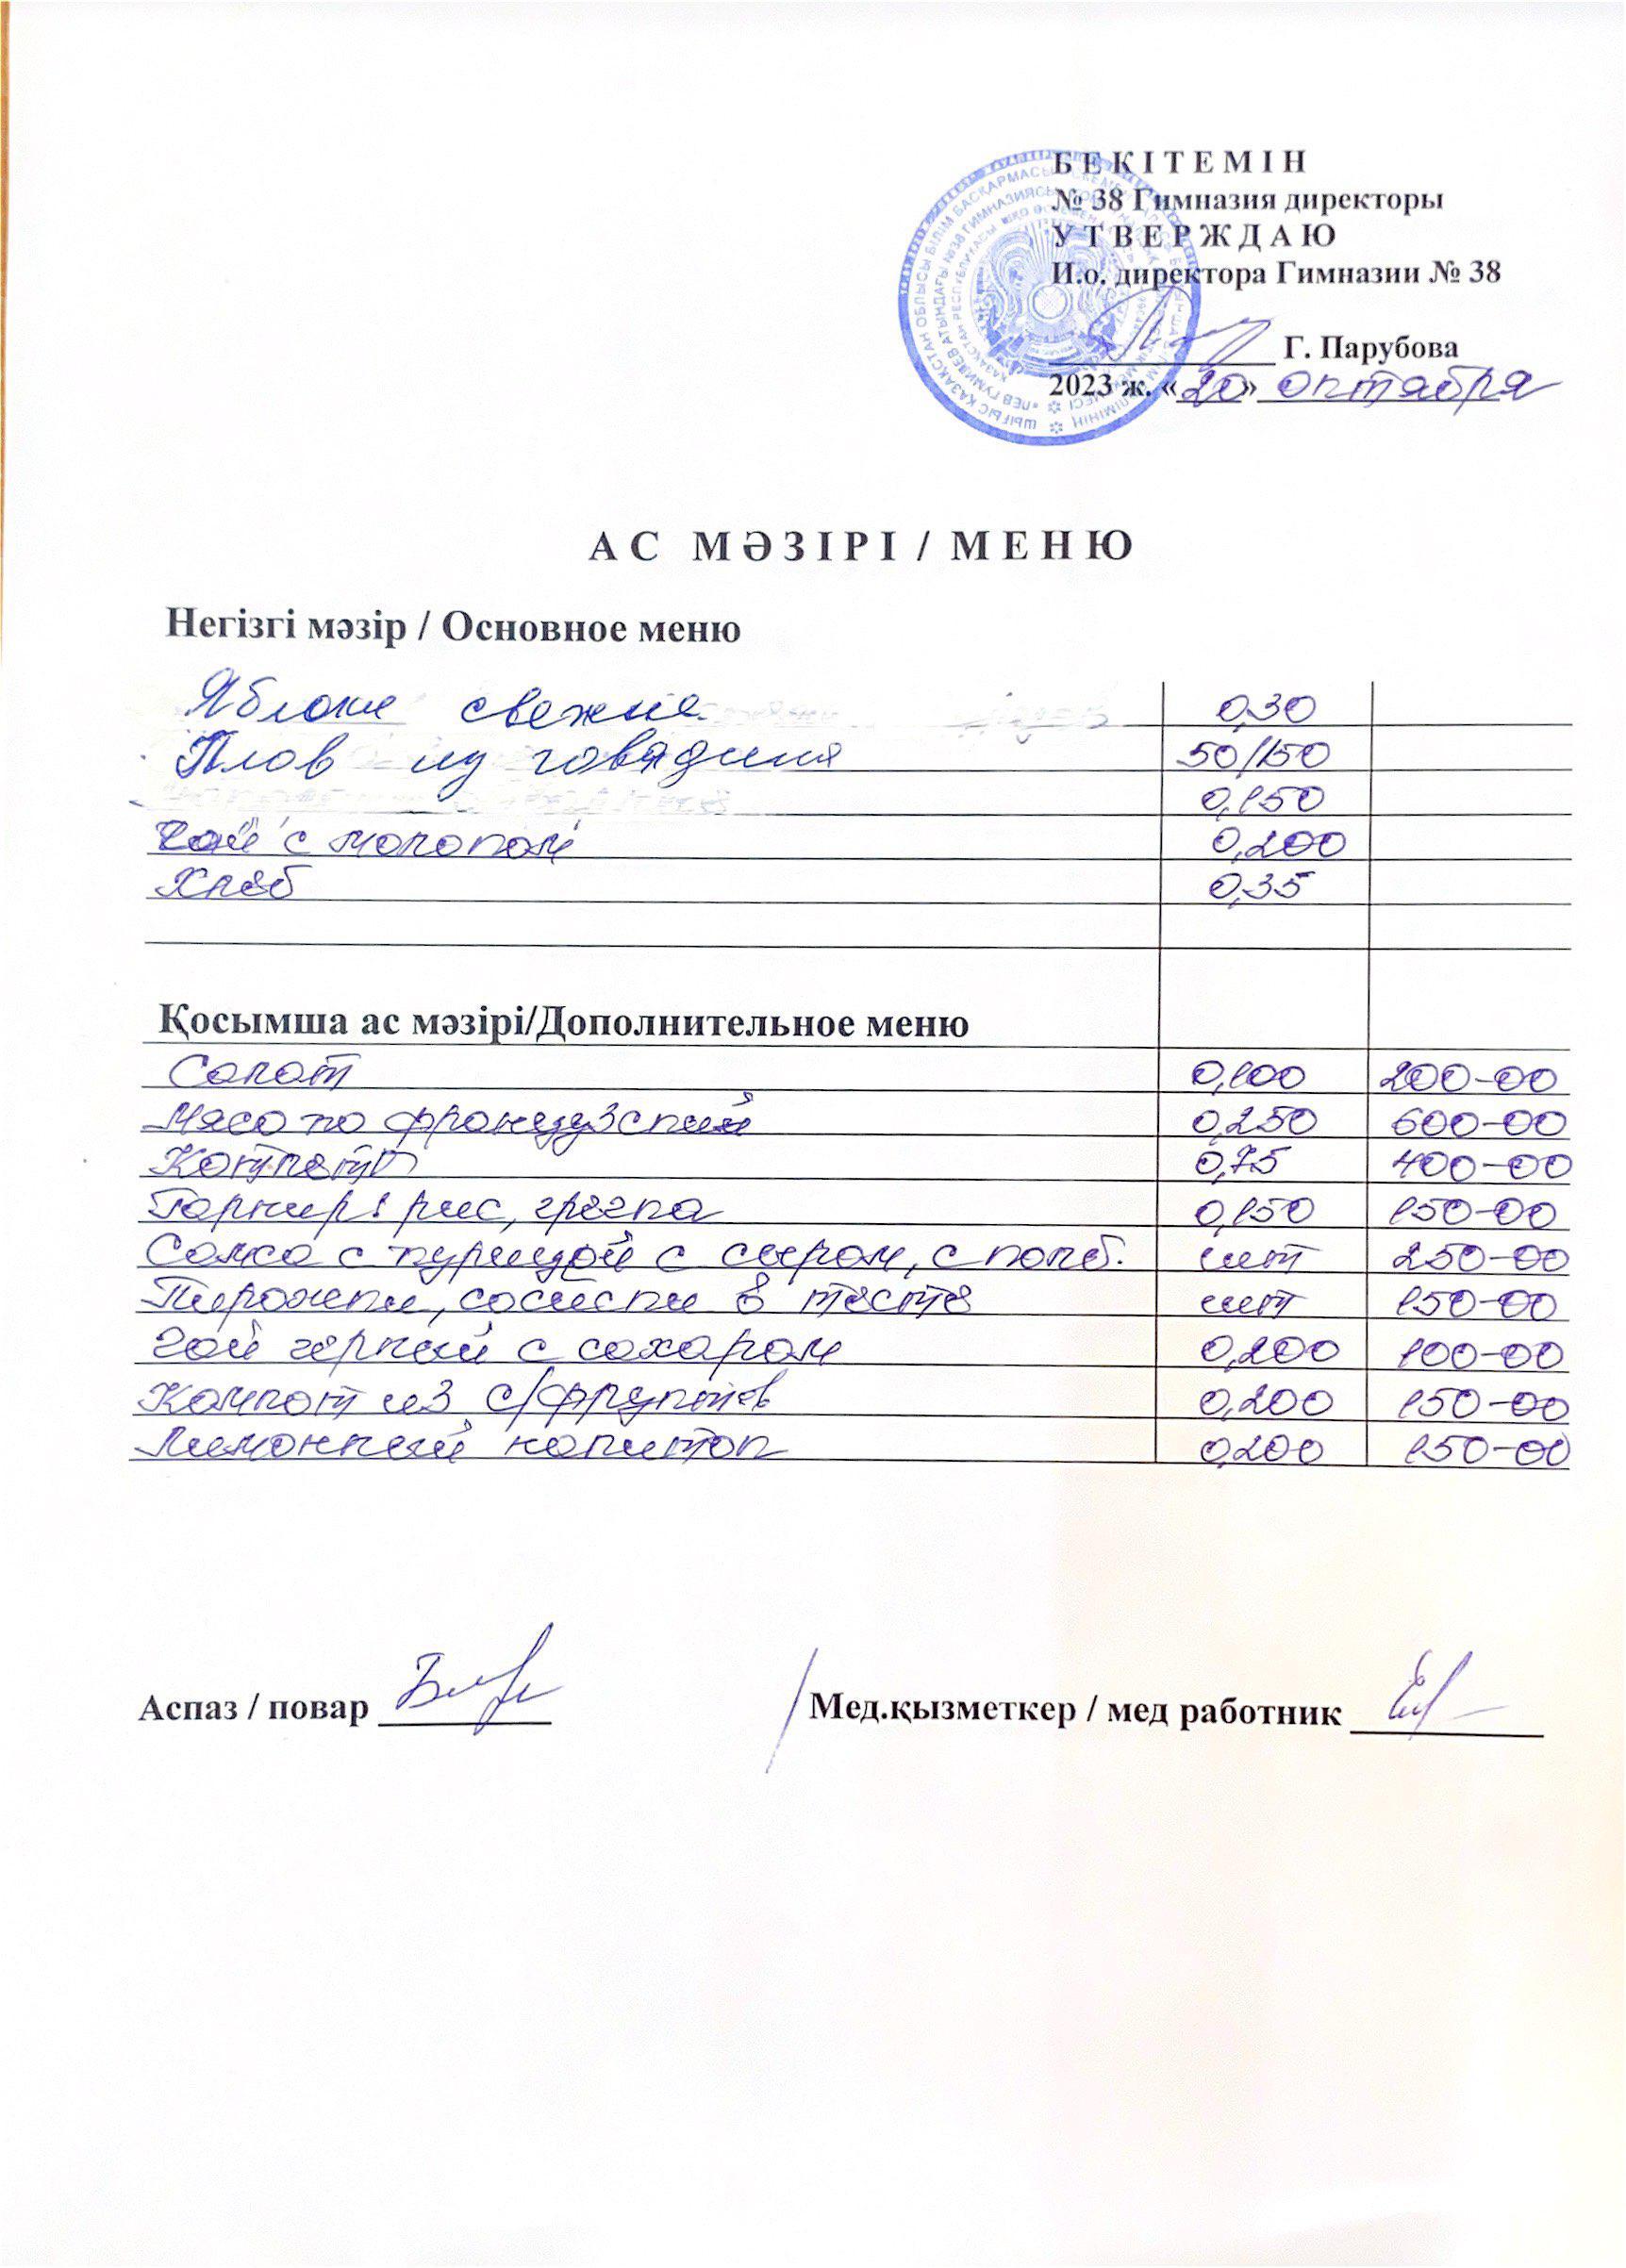 Б Е К І Т Е М І Н
№ 38 Гимназия директоры
У Т В Е Р Ж Д А Ю
И.о. директора Гимназии № 38
Г. Парубова
2023 ж. «20» октября
А С М Ә З І Р І / М Е Н Ю
Негізгі мәзір / Основное меню
Яблоки свежие 0,30
Плов из говядины 50/150
0,150
Чай с молоком 0,200
Хлеб 0,35
Қосымша ас мәзірі/Дополнительное меню
Салат 0,100 200-00
Мясо по французский 0,250 600-00
Котлеты 0,75 400-00
Гарнир: рис, гречка 0,150 150-00
Самса с курицей с сыром, с колб. шт 250-00
Пирожки, сосиски в тесте шт 150-00
Чай чёрный с сахаром 0,200 100-00
Компот из с/фруктов 0,200 150-00
Лимонный напиток 0,200 150-00
Аспаз / повар Мед.қызметкер / мед работник